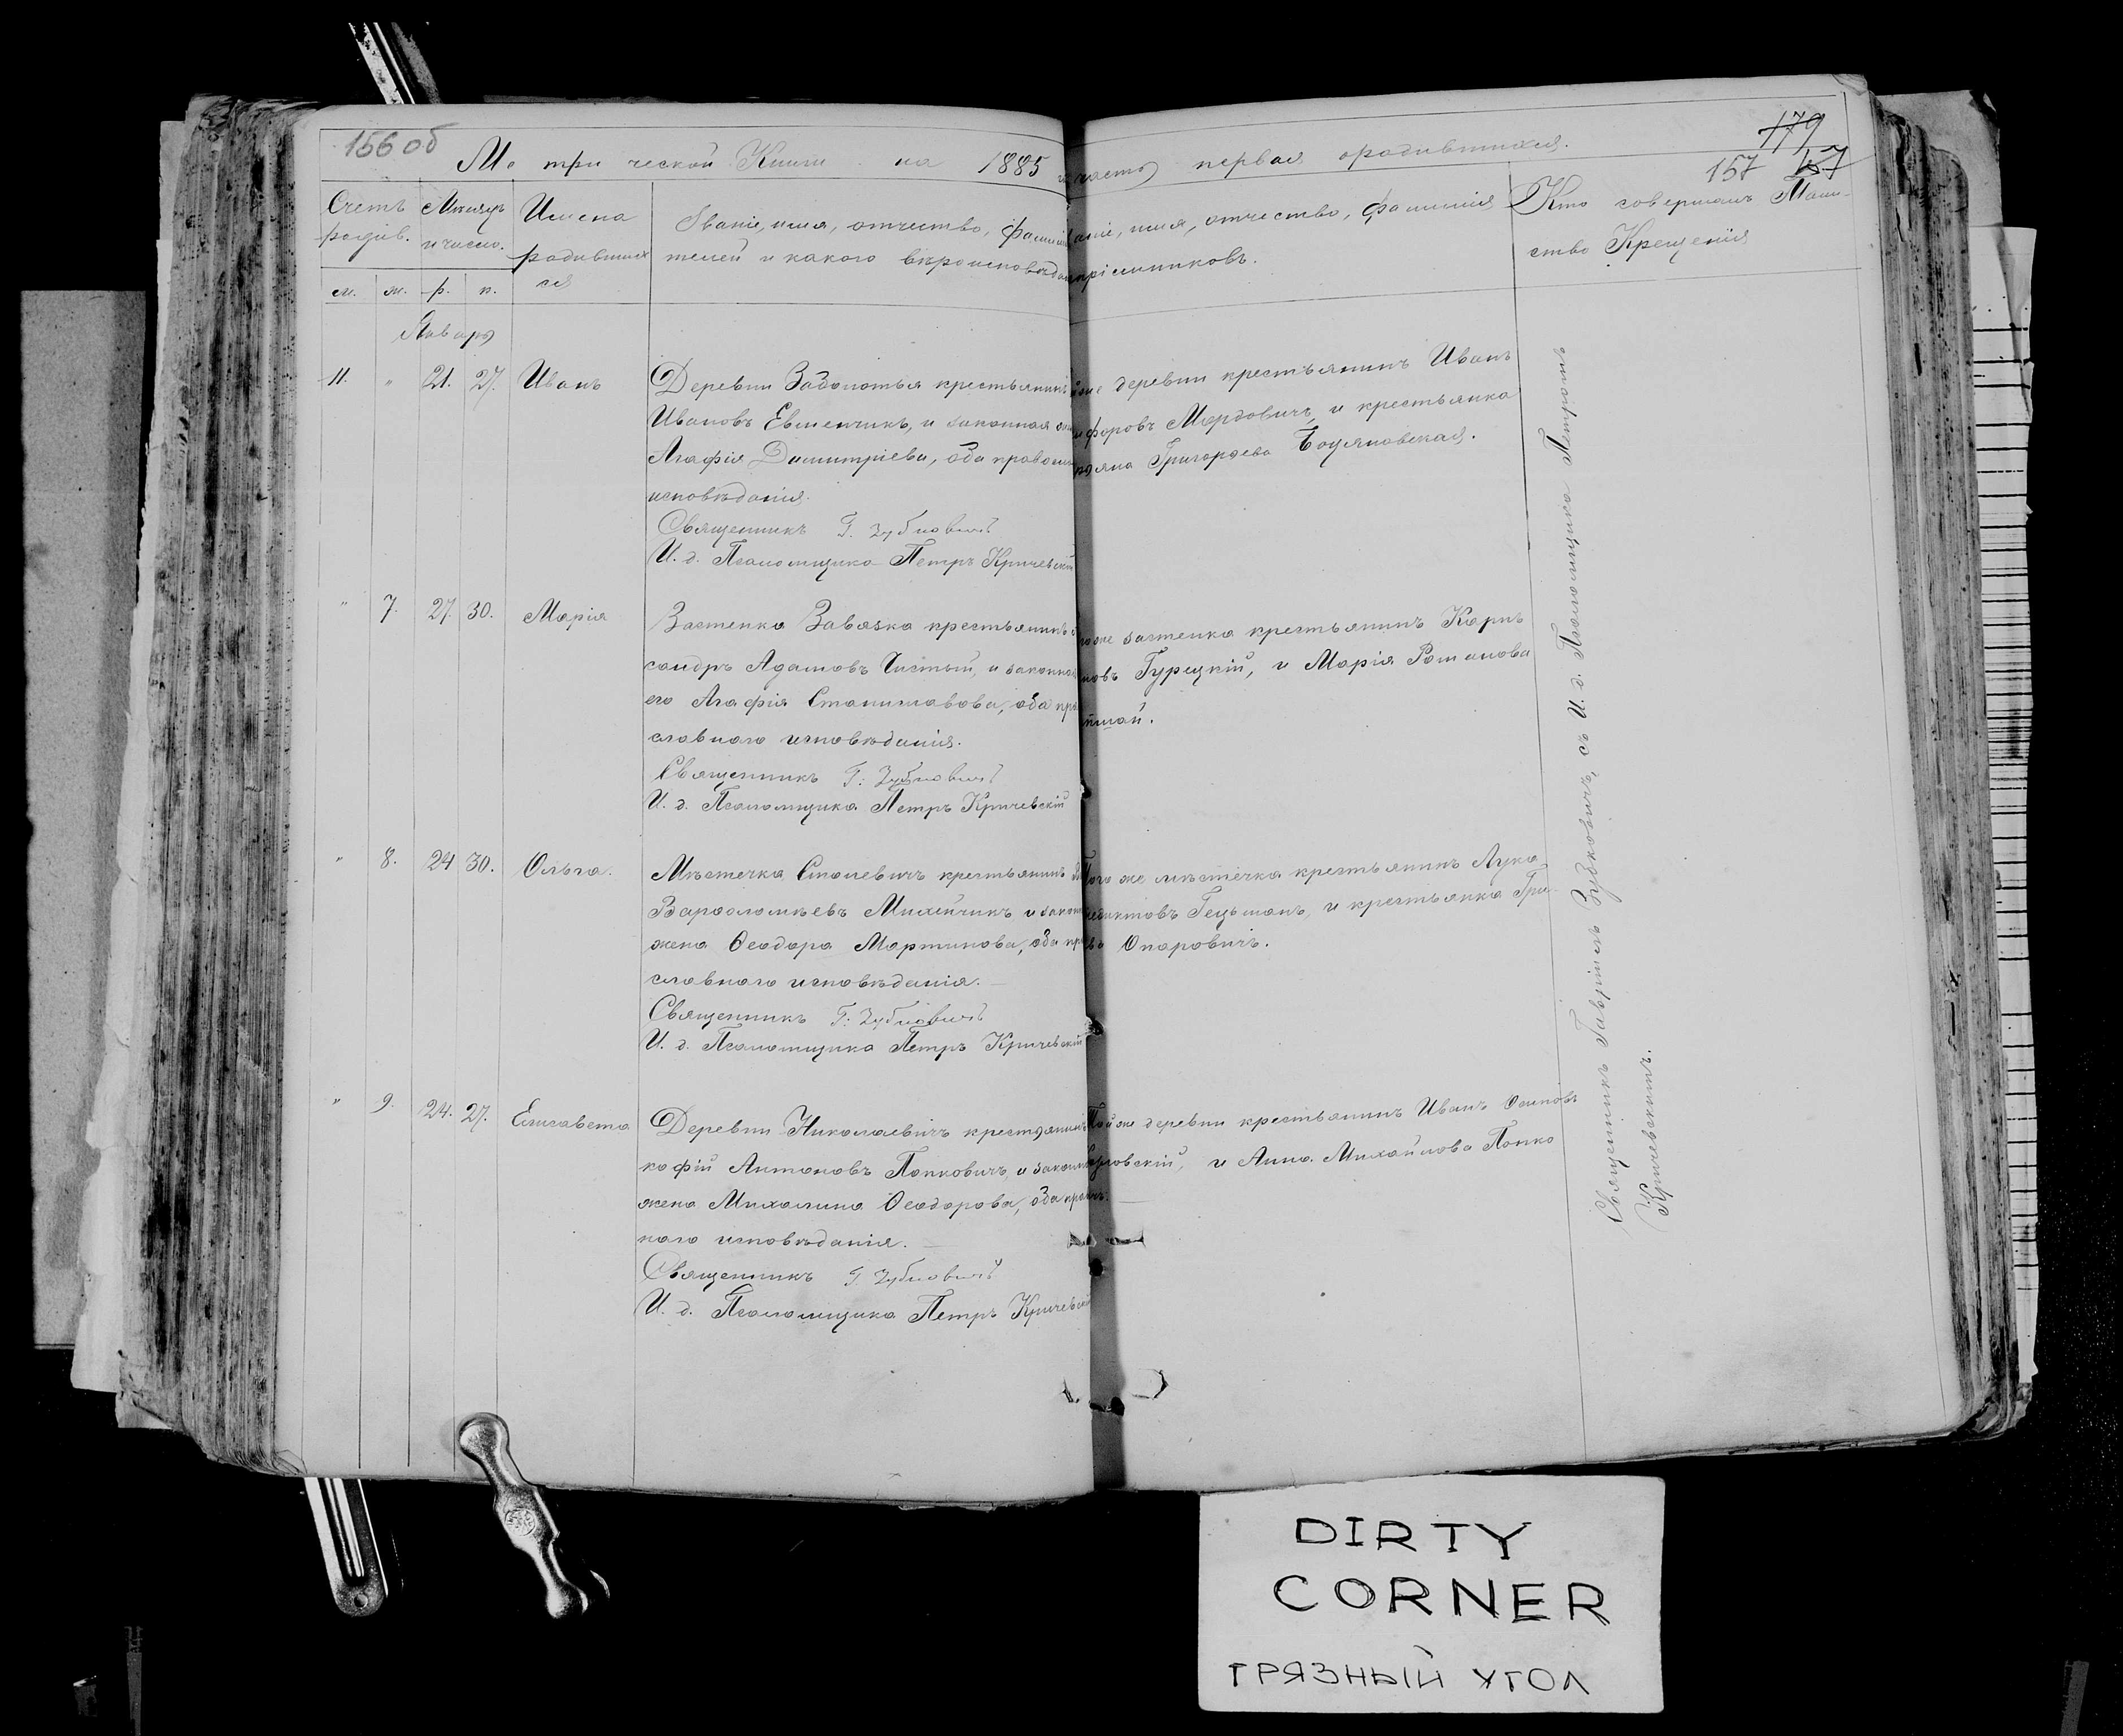 156 об
Ме три ческой Книги на 1885 часть первая о родившихся.
179
157 157
Счетъ родив.
Мѣсяцъ и число.
Имена родивших ся
м. ж. р. к.
Званіе, имя, отчество, фамилія
телей и какого вѣроисповѣдан
аніе, имя, отчество, фамилія
пріемниковъ.
Кто совершалъ Таин-
ство Крещенія
Январь
11. " 21. 27. Иванъ
Деревни Заболотья крестьянинъ
Ивановъ Евменчикъ, и законная
Агафія Димитріева, оба правосл
исповѣданія.
Священникъ Г. Зубковичъ
И. д. Псаломщика Петръ Кричевскій
же деревни крестьянинъ Иванъ
форовъ Мардовичъ, и крестьянка
яна Григорьева
" 7. 27. 30. Марія
Застенка Завязка крестьянинъ
сандръ Адамовъ Чистый, и законная
его Агафія Станиславова, оба пра
славнаго исповѣданія.
Священникъ Г. Зубковичъ
И. д. Псаломщика Петръ Кричевскій
же застенка крестьянинъ Карпъ
новъ Гурецкій, и Марія Романова
" 8. 24 30. Ольга.
Мѣстечка Столевичъ крестьянинъ
Варѳоломѣевъ Михейчикъ и закон
жена Ѳеодора Мартинова, оба пра
славнаго исповѣданія.
Священникъ Г. Зубковичъ
И. д. Псаломщика Петръ Кричевскій
Того же мѣстечка крестьянинъ Лука
едиктовъ Гецманъ, и крестьянка Гри
ва Опаровичъ.
" 9. 24. 27. Елисавета
Деревни Николаевичъ крестьянинъ
кофій Антоновъ Попковичъ, и закон
жена Михалина Ѳеодорова, оба прав
наго исповѣданія.
Священникъ Г. Зубковичъ
И. д. Псаломщика Петръ Кричевскій
Той же деревни крестьянинъ Иванъ Осиповъ
и Анна Михайлова Попко
Священникъ Гавріилъ Зубковичъ, съ И. д. Псаломщика Петромъ
Кричевскимъ.
DIRTY
CORNER
ГРЯЗНЫЙ УГОЛ